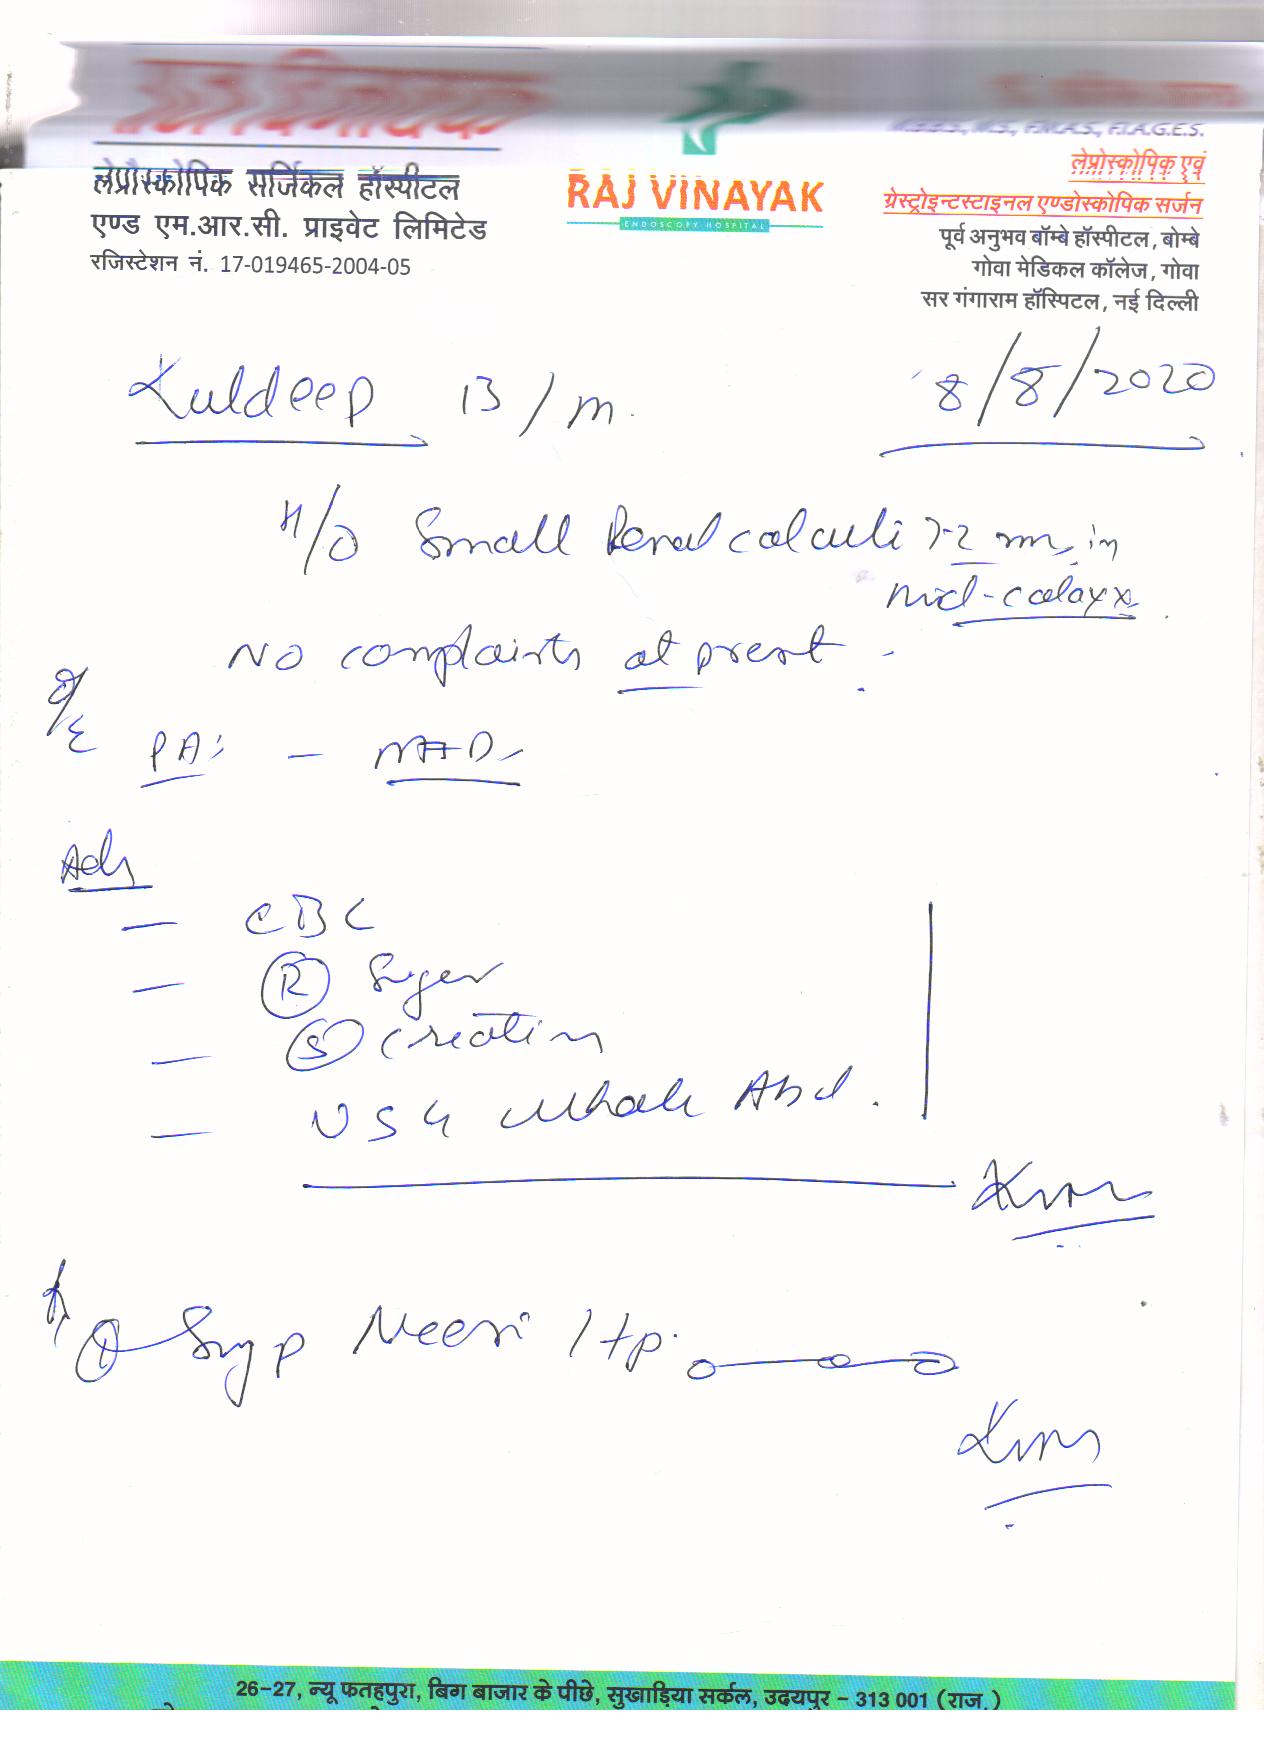 राज विनायक
M.B.B.S., M.S., F.M.A.S., F.I.A.G.E.S.
लेप्रौस्कोपिक सर्जिकल हॉस्पीटल
एण्ड एम.आर.सी. प्राइवेट लिमिटेड
रजिस्टेशन नं. 17-019465-2004-05
RAJ VINAYAK
ENDOSCOPY HOSPITAL
लेप्रोस्कोपिक एवं
ग्रेस्ट्रोइन्टस्टाइनल एण्डोस्कोपिक सर्जन
पूर्व अनुभव बॉम्बे हॉस्पीटल, बोम्बे
गोवा मेडिकल कॉलेज, गोवा
सर गंगाराम हॉस्पिटल, नई दिल्ली
Kuldeep 13/m. 8/8/2020
H/O Small Renal calculi >2 mm in
mid-calayx
NO complaints at present.
O/E
PA: -
Adv
- CBC
- (R) Suger
- (S) Creatin
- USG Whole Abd.
(1) Syp Neeri 1 tp. o—o—o
26-27, न्यू फतहपुरा, बिग बाजार के पीछे, सुखाड़िया सर्कल, उदयपुर - 313 001 (राज.)